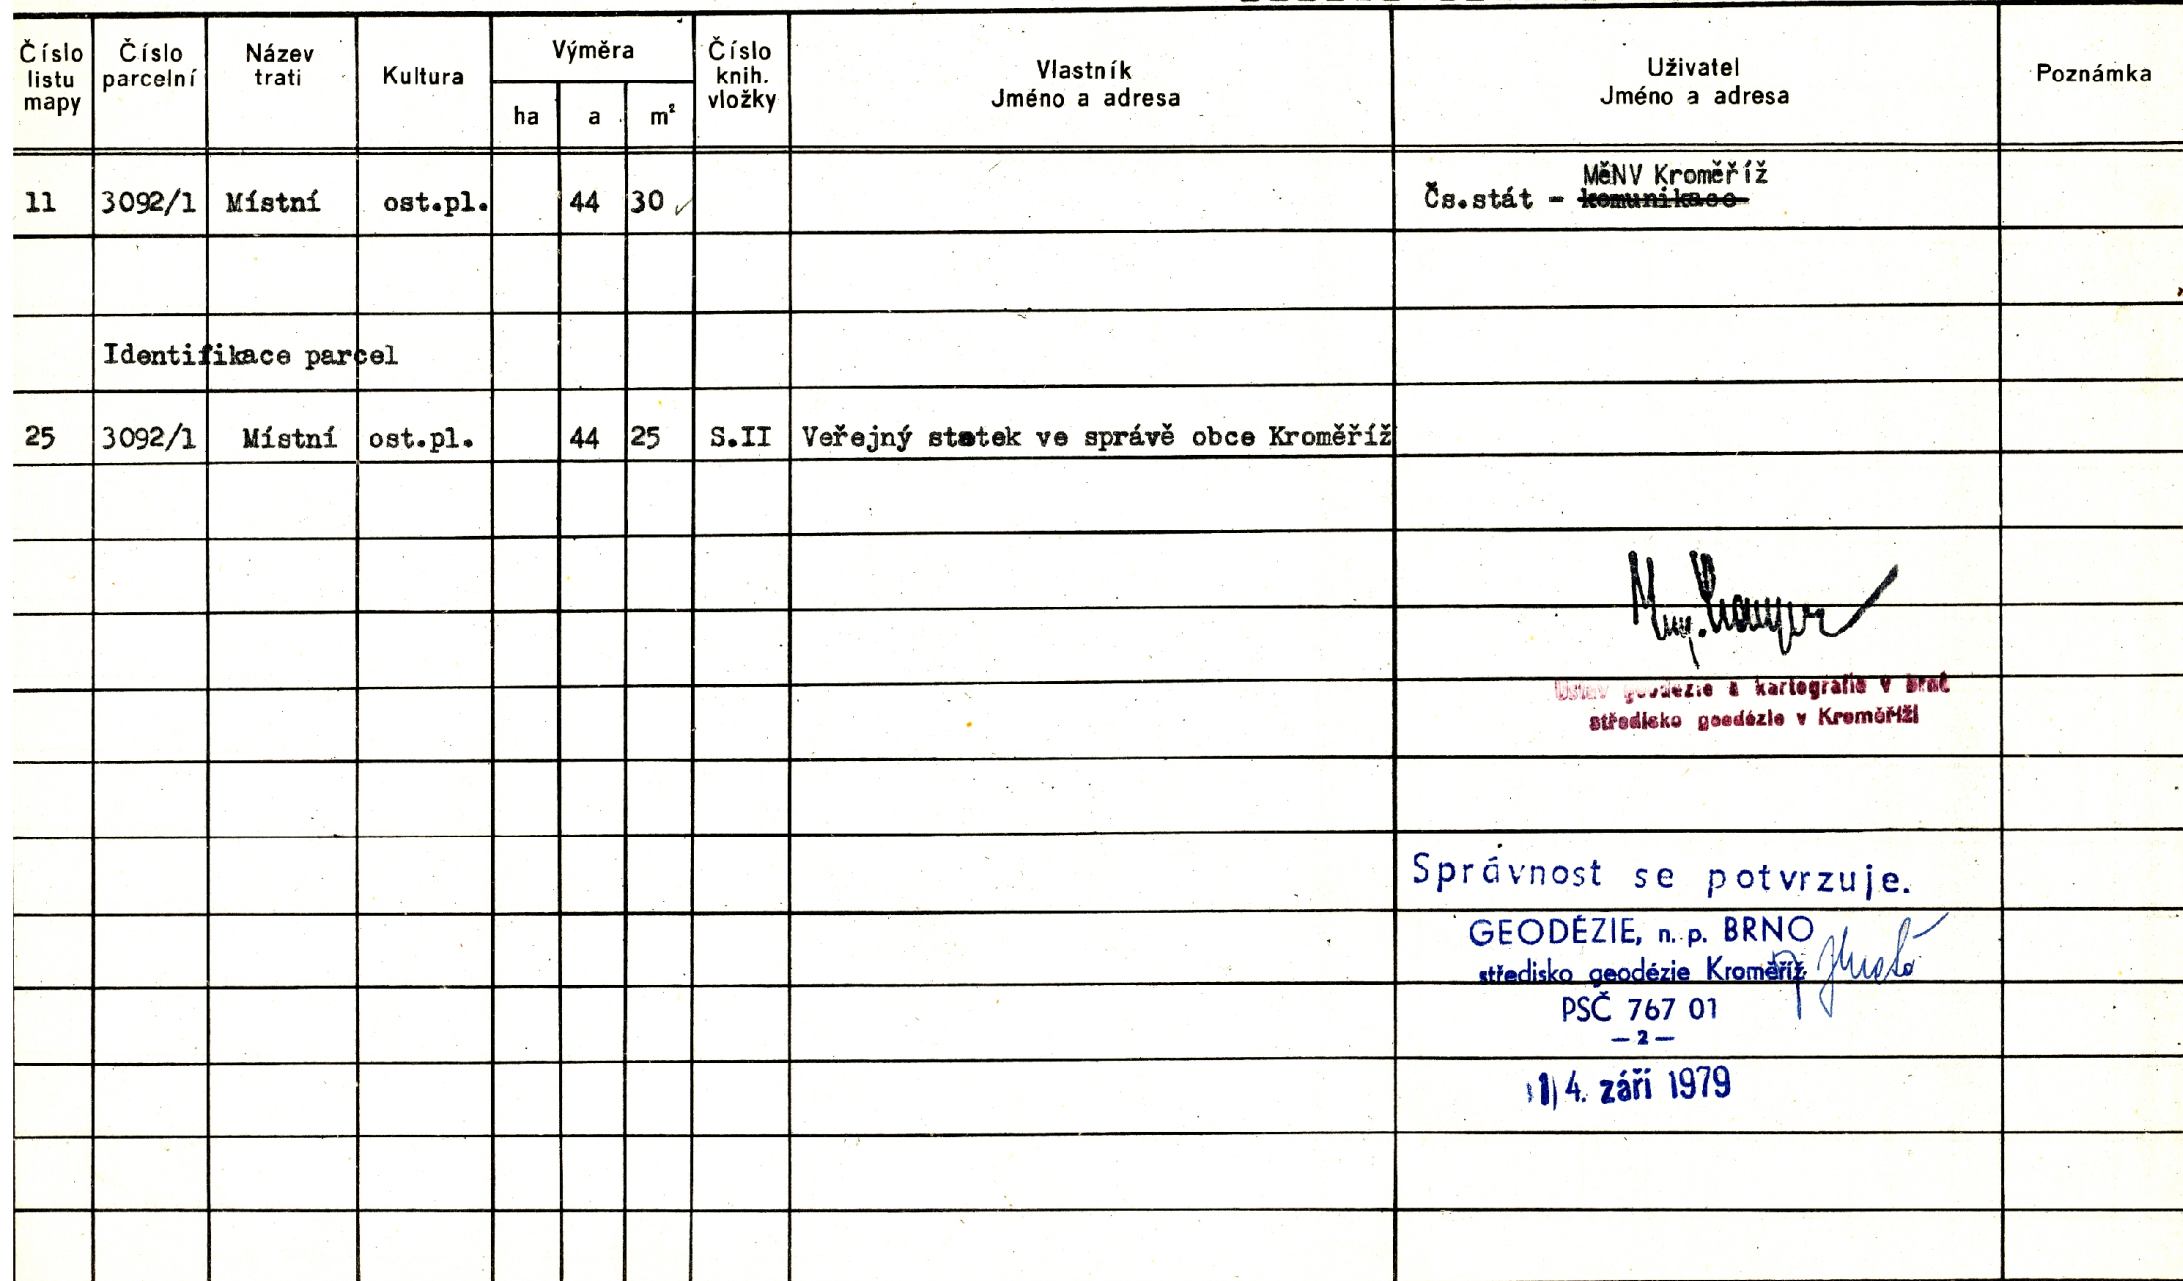 Číslo listu mapy Číslo parcelní Název trati Kultura Výměra ha a m² Číslo knih. vložky Vlastník Jméno a adresa Uživatel Jméno a adresa Poznámka
MěNV Kroměříž
11 3092/1 Místní ost.pl. 44 30 Čs.stát - komunikace
Identifikace parcel
25 3092/1 Místní ost.pl. 44 25 S.II Veřejný statek ve správě obce Kroměříž
Ústav geodézie a kartografie v Brně
středisko goedézie v Kroměříži
Správnost se potvrzuje.
GEODÉZIE, n. p. BRNO
středisko geodézie Kroměříž
PSČ 767 01
— 2 —
14. září 1979